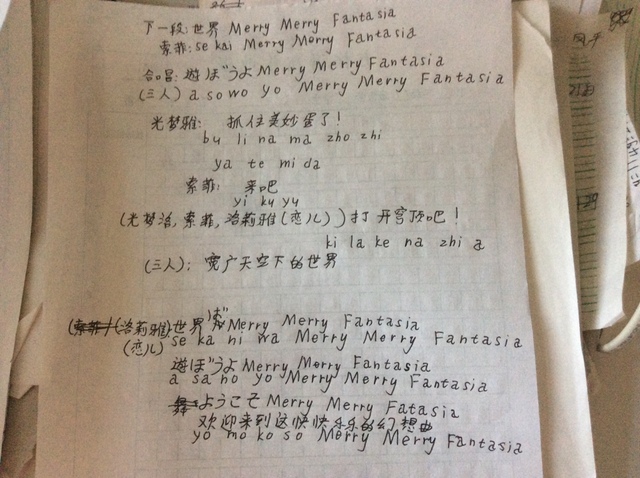 下一段:世界 Merry Merry Fantasia
索菲:se kai Merry Merry Fantasia
合唱:遊ぼうよ Merry Merry Fantasia
(三人) a so wo yo Merry Merry Fantasia
光梦雅: 抓住美妙蛋了!
bu li na ma zho zhi
ya te mi da
索菲: 来吧
yi ku yu
(光梦洛,索菲,洛莉雅(恋儿))打开穹顶吧!
ki la ke na zhi a
(三人): 宽广天空下的世界
(洛莉雅)世界は Merry Merry Fantasia
(恋儿) se ka ni wa Merry Merry Fantasia
遊ぼうよ Merry Merry Fantasia
a sa ho yo Merry Merry Fantasia
ようこそ Merry Merry Fatasia
欢迎来到这快快乐乐的幻想曲
yo mo ko so Merry Merry Fantasia